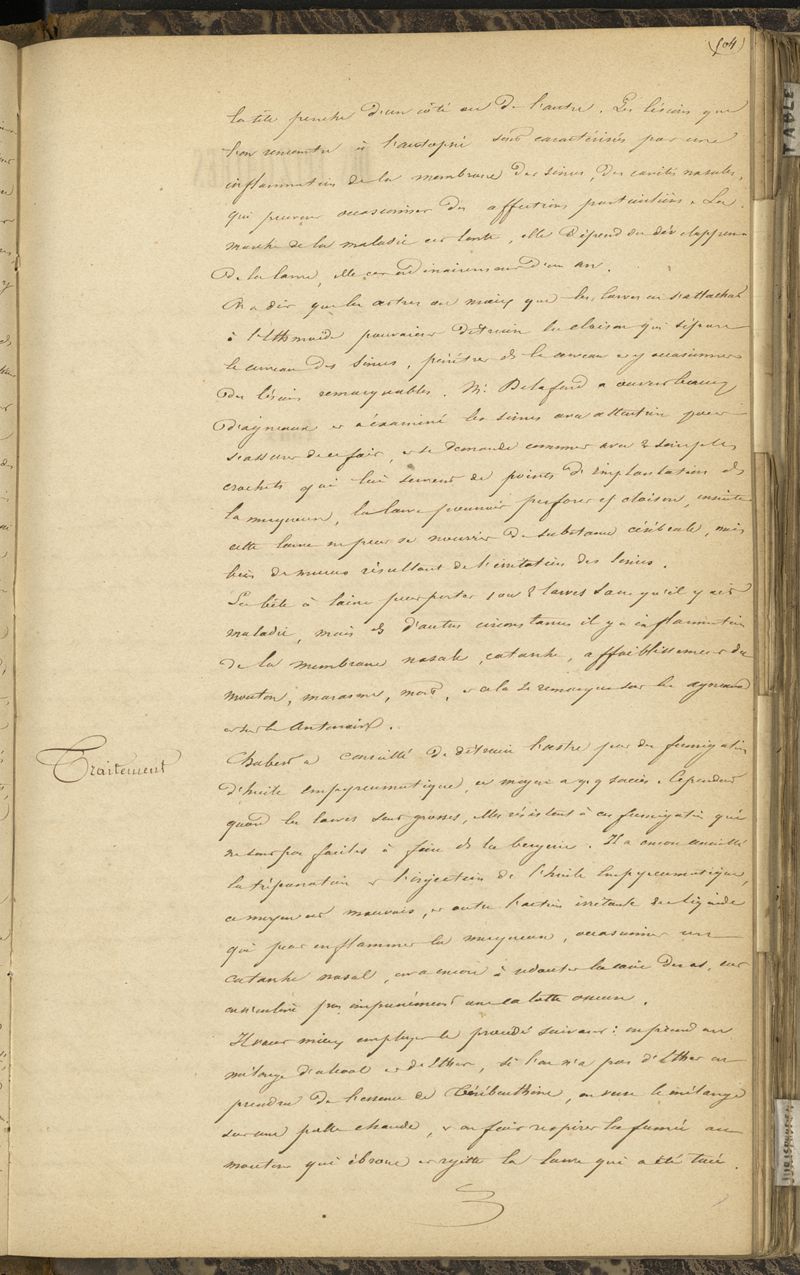 (104)
TABLE
la tête penche d'un côté ou de l'autre. Les lésions que
l'on rencontre à l'autopsie sont caractérisées par une
inflammation de la membrane des sinus, des cavités nasales,
qui peuvent occasionner des affections particulières. La
marche de la maladie est lente, elle dépend du développem
de la larve, elle est ordinairement d'un an.
On a dit que les œstres ou mieux que les larves en s'attachant
à l'Ethmoïde pouvaient détruire la cloison qui sépare
le cerveau des sinus, pénétrer ds le cerveau et y occasionner
des lésions remarquables. Mr Delafond a ouvert beaucoup
d'agneaux et a examiné les sinus avec attention pour
s'assurer de ce fait, et se demande comment avec 2 simples
crochets qui lui servent de points d'implantation ds
la muqueuse, la larve pourrait perforer cette cloison, ensuite
cette larve ne peut se nourrir de substance cérébrale, mais
bien de mucus résultant de l'irritation des sinus.
La bête à laine peut porter 1 ou 2 larves sans qu'il y ait
maladie, mais ds d'autres circonstances il y a inflammation
de la membrane nasale, catarrhe, affaiblissement du
mouton, marasme, mort, et cela se remarque sur les agneaux
et sur les Antenais.
Traitement
Chabert a conseillé de détruire l'œstre par des fumigations
d'huile empyreumatique, ce moyen a qq succès. Cependant
quand les larves sont grosses, elles résistent à ces fumigations qui
ne sont pas faciles à faire ds la bergerie. Il a encore conseillé
la trépanation et l'injection de l'huile Empyreumatique,
ce moyen est mauvais, et outre l'action irritante du liquide
qui peut enflammer la muqueuse, occasionner un
catarrhe nasal, on a encore à redouter la carie des os, car
on n'enlève pas impunément une calotte osseuse.
Il vaut mieux employer le procédé suivant : on prend un
mélange d'alcool et de Ether, si l'on n'a pas d'Ether on
prendra de l'essence de Térébenthine, on verse le mélange
sur une pelle chaude, et on fait respirer la fumée au
mouton qui ébroue et rejette la larve qui a été tuée.
JURISPRUDENCE